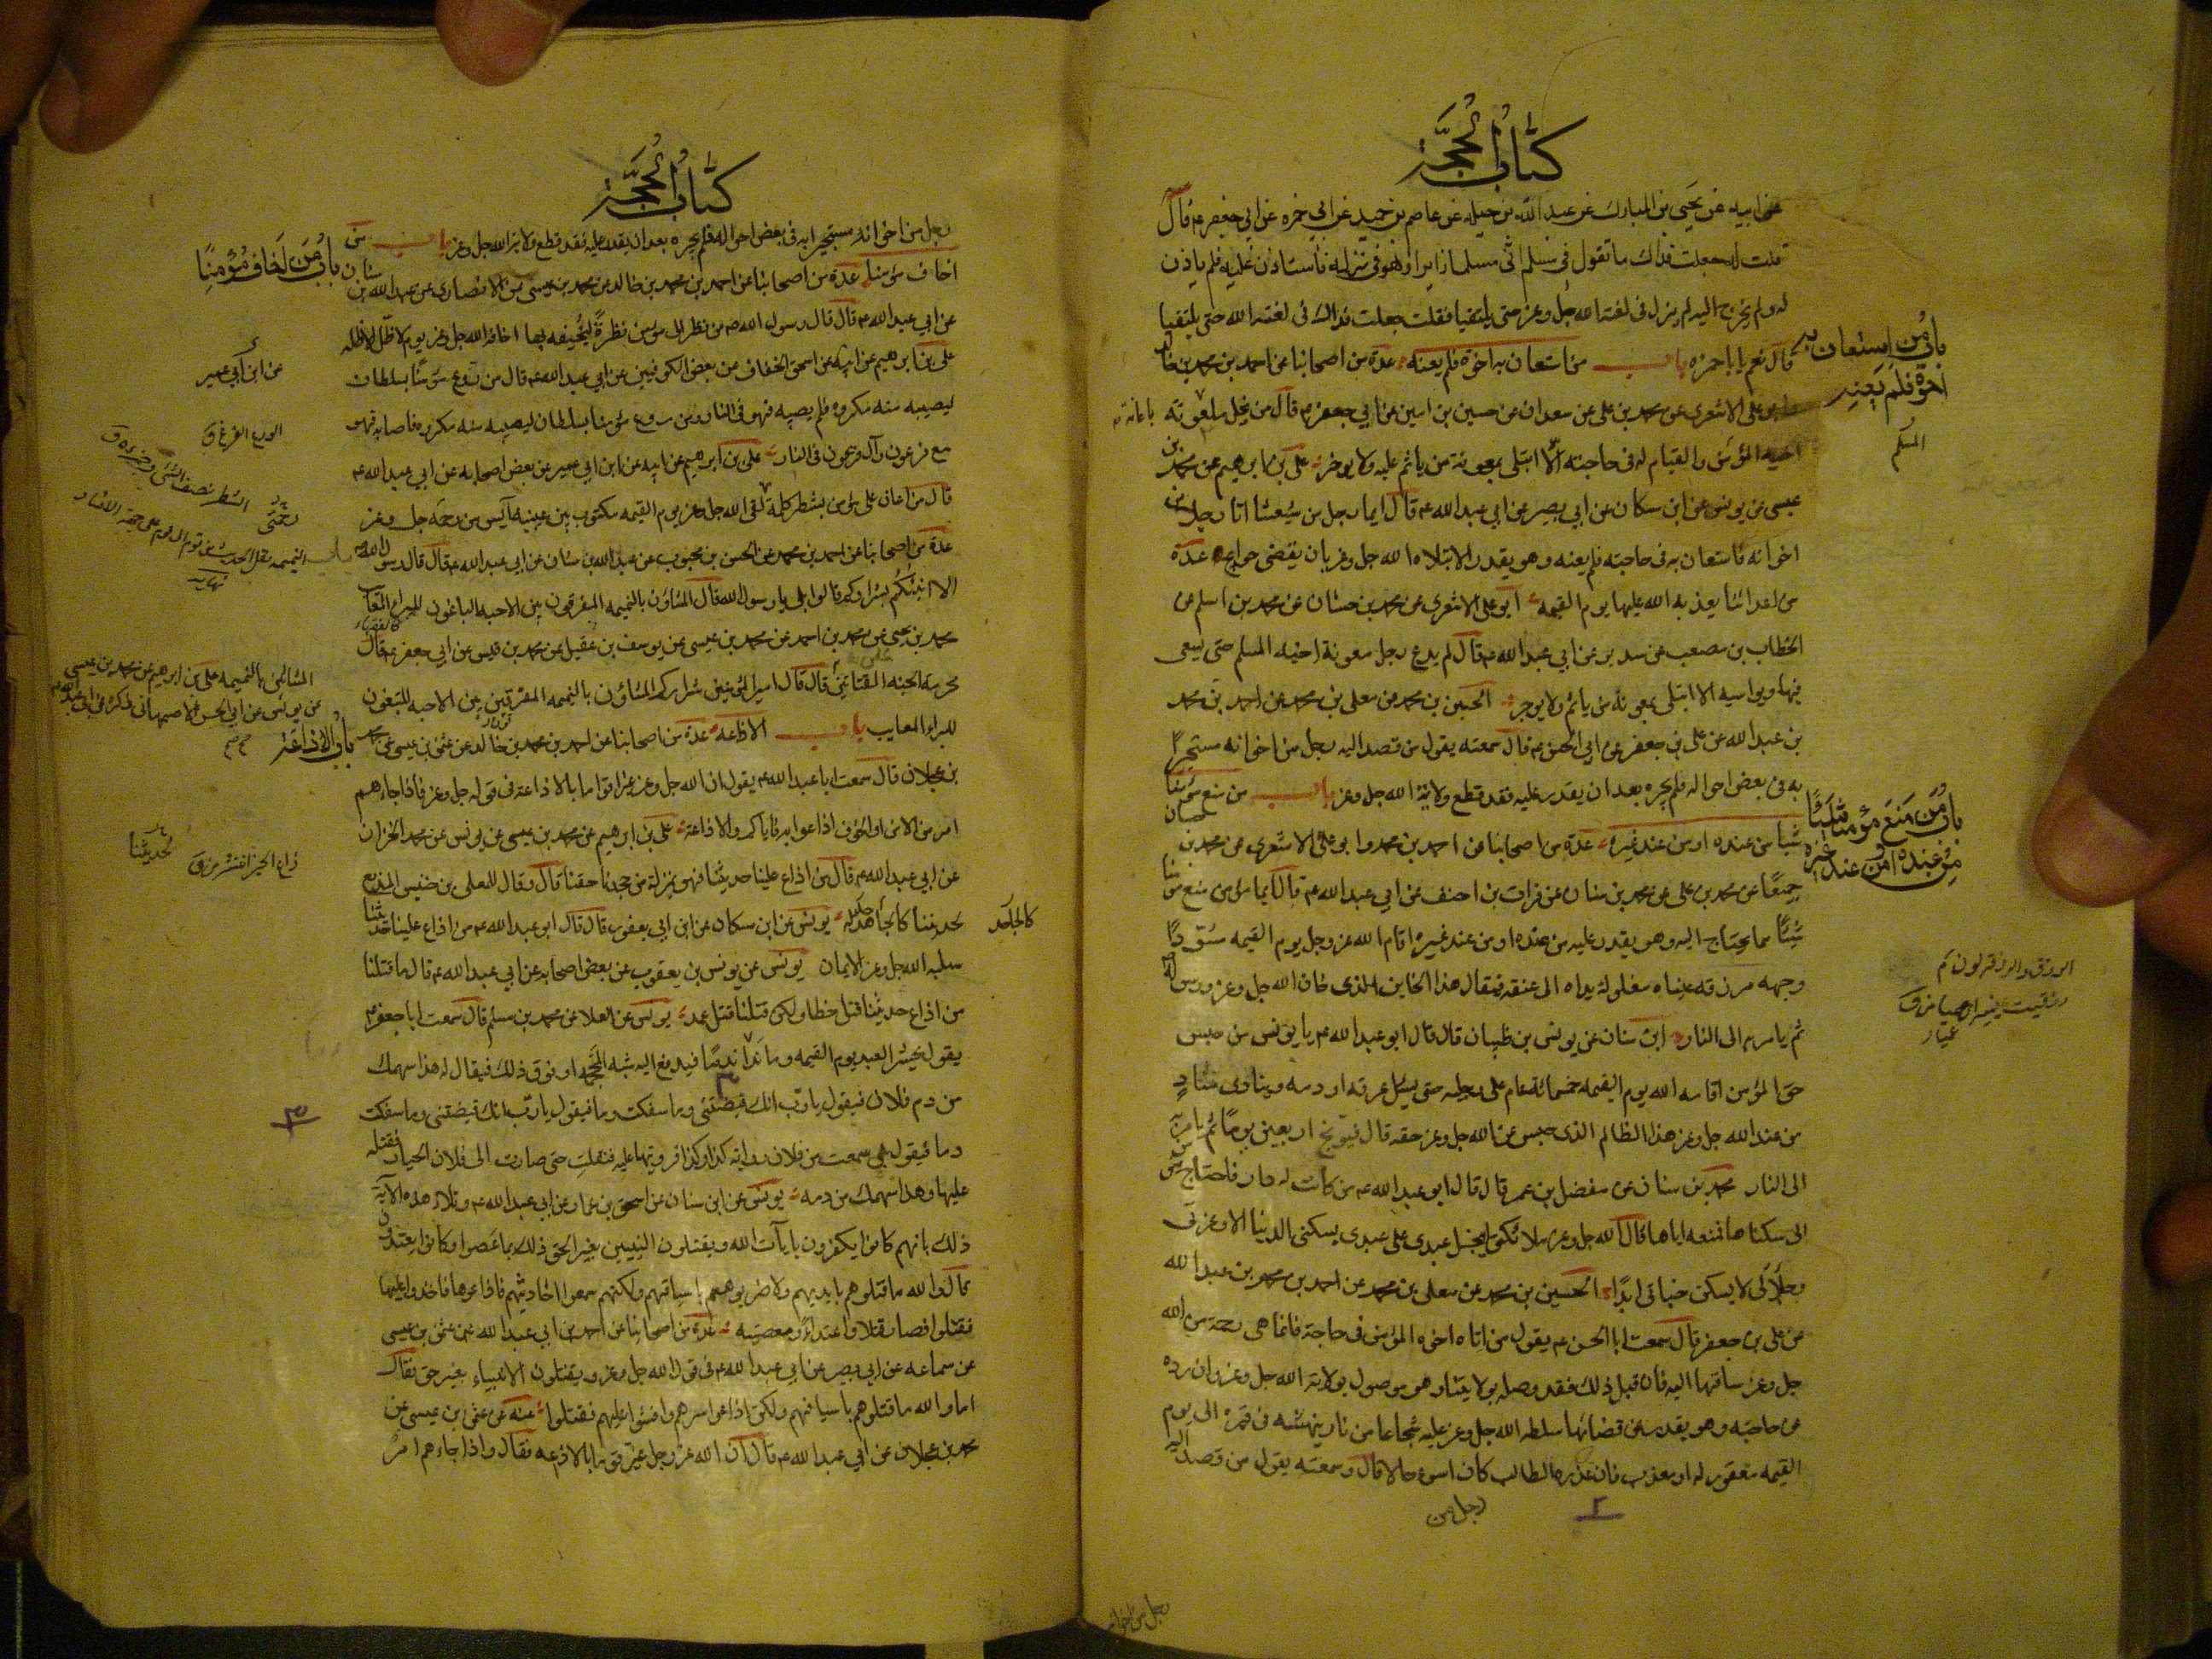 كتاب الحجة
عن ابيه عن يحيى بن المبارك عن عبد الله بن جبله عن عاصم بن حميد عن ابي حمزه عن ابي جعفر ع قال
قلت له جعلت فداك ما تقول في مسلم اتى مسلما زايرا وهو في منزله فاستاذن عليه فلم ياذن
له ولم يخرج اليه لم يزل في لعنة الله جل وعز حتى يلتقيا فقلت جعلت فداك في لعنة الله حتى يلتقيا
قال نعم يا با حمزه باب من استعان به اخوه فلم يعنه عدة من اصحابنا عن احمد بن محمد بن خالد
وابو على الاشعرى عن محمد بن على عن سعدان عن حسين بن امين عن ابي جعفر ع قال من بخل بمعونة
اخيه المؤمن والقيام له في حاجته الا ابتلى بمعونة من ياثم عليه ولا يوجر على بن ابرهيم عن محمد بن
عيسى عن يونس عن ابن سكان عن ابي بصير عن ابي عبد الله ع قال ايما رجل من شيعتنا اتا رجل من
اخوانه فاستعان به في حاجته فلم يعنه وهو يقدر الا ابتلاه الله جل وعز بان يقضى حوايج عدة
من اعدائنا يعذبه الله عليها يوم القيمه ابو على الاشعرى عن محمد بن حسان عن محمد بن اسلم عن
الخطاب بن مصعب عن سدير عن ابي عبد الله ع قال لم يدع رجل معونة اخيه المسلم حتى يسعى
فيها ويواسيه الا ابتلى بمعونة من ياثم ولا يوجر الحسين بن محمد عن معلى بن محمد عن احمد بن محمد
بن عبد الله عن على بن جعفر عن ابي الحسن ع قال سمعته يقول من قصد اليه رجل من اخوانه مستجيرا
به في بعض احواله فلم يجره بعد ان يقدر عليه فقد قطع ولاية الله جل وعز باب من منع مؤمنا
شيا من عنده او من عند غيره عدة من اصحابنا عن احمد بن محمد وابو على الاشعرى عن محمد بن حسان
جميعا عن محمد بن على عن محمد بن سنان عن فرات بن احنف عن ابي عبد الله ع قال ايما مؤمن منع مؤمنا
شيئا مما يحتاج اليه وهو يقدر عليه من عنده او من عند غيره اقام الله عز وجل يوم القيمه مسودا
وجهه مزرقه عيناه مغلوله يداه الى عنقه فيقال هذا الخاين الذى خان الله جل وعز ورسوله
ثم يامر به الى النار ابن سنان عن يونس بن ظبيان قال قال ابو عبد الله ع يا يونس من حبس
حق المؤمن اقامه الله يوم القيمه خمسمائة عام على رجليه حتى يسيل عرقه او دمه وينادى مناد
من عند الله جل وعز هذا الظالم الذى حبس عن الله جل وعز حقه قال فيوبخ اربعين يوما ثم يامر به
الى النار محمد بن سنان عن مفضل بن عمر قال قال ابو عبد الله ع من كانت له دار فاحتاج مؤمن
الى سكناها فمنعه اياها قال الله جل وعز ملائكتى ابخل عبدى على عبدى بسكنى الدنيا الا وعزتى
وجلالى لا يسكن جنانى ابدا الحسين بن محمد عن معلى بن محمد عن احمد بن محمد بن عبد الله
عن على بن جعفر قال سمعت ابا الحسن ع يقول من اتاه اخوه المؤمن في حاجة فانما هى رحمة من الله
جل وعز ساقها اليه فان قبل ذلك فقد وصله بولايتنا وهو موصول بولاية الله جل وعز وان رده
عن حاجته وهو يقدر على قضائها سلط الله جل وعز عليه شجاعا من نار ينهشه في قبره الى يوم
القيمه مغفور له او معذب فان عذره الطالب كان اسوء حالا قال وسمعته يقول من قصد اليه
رجل من
باب من استعان به
اخوه فلم يعنه
المسلم
باب من منع مؤمنا شيئا
من عنده او من عند غيره
كتاب الحجة
رجل من اخوانه مستجيرا به في بعض احواله فلم يجره بعد ان يقدر عليه فقد قطع ولاية الله جل وعز باب من
اخاف مؤمنا عدة من اصحابنا عن احمد بن محمد بن خالد عن محمد بن عيسى عن الانصارى عن عبد الله بن سنان
عن ابي عبد الله ع قال قال رسول الله ص من نظر الى مؤمن نظرة ليخيفه بها اخافه الله جل وعز يوم لا ظل الا ظله
على بن ابرهيم عن ابيه عن اسحق الخفاف عن بعض الكوفيين عن ابي عبد الله ع قال من روع مؤمنا بسلطان
ليصيبه منه مكروه فلم يصبه فهو في النار ومن روع مؤمنا بسلطان ليصيبه منه مكروه فاصابه فهو
مع فرعون وآل فرعون في النار على بن ابرهيم عن ابيه عن ابن ابي عمير عن بعض اصحابه عن ابي عبد الله ع
قال من اعان على مؤمن بشطر كلمة لقى الله جل وعز يوم القيمه مكتوب بين عينيه آيس من رحمة جل وعز
عدة من اصحابنا عن احمد بن محمد عن الحسن بن محبوب عن عبد الله بن سنان عن ابي عبد الله ع قال قال رسول الله ص
الا انبئكم بشراركم قالوا بلى يا رسول الله قال المشاؤن بالنميمه المفرقون بين الاحبه الباغون للبراء المعايب
محمد بن يحيى عن محمد بن احمد عن محمد بن عيسى عن يوسف بن عقيل عن محمد بن قيس عن ابي جعفر ع قال
محرمة الجنه القتاتين قال قال امير المؤمنين شراركم المشاؤن بالنميمه المفرقون بين الاحبه المبتغون
للبراء المعايب باب الاذاعه عدة من اصحابنا عن احمد بن محمد بن خالد عن عثمن بن عيسى عن محمد
بن عجلان قال سمعت ابا عبد الله ع يقول ان الله جل وعز عير اقواما بالاذاعة في قوله جل وعز واذا جاءهم
امر من الامن او الخوف اذاعوا به فاياكم والاذاعة على بن ابرهيم عن محمد بن عيسى عن يونس عن محمد الخزاز
عن ابي عبد الله ع قال من اذاع علينا حديثنا فهو بمنزلة من جحدنا حقنا قال وقال للمعلى بن خنيس المذيع
لحديثنا كالجاحد له يونس عن ابن سكان عن ابن ابي يعفور قال قال ابو عبد الله ع من اذاع علينا حديثنا
سلبه الله جل وعز الايمان يونس عن يونس بن يعقوب عن بعض اصحابه عن ابي عبد الله ع قال ما قتلنا
من اذاع حديثنا قتل خطا ولكن قتلنا قتل عمد يونس عن العلا عن محمد بن مسلم قال سمعت ابا جعفر ع
يقول يحشر العبد يوم القيمه وما ندا دما فيدفع اليه شبه المحجمه او فوق ذلك فيقال له هذا سهمك
من دم فلان فيقول يا رب انك قبضتنى وما سفكت دما فيقول يا رب انك قبضتنى وما سفكت
دما فيقول بلى سمعت من فلان رواية كذا وكذا فرويتها عليه فنقلت حتى صارت الى فلان الجبار فقتله
عليها وهذا سهمك من دمه يونس عن ابن سنان عن اسحق بن عمار عن ابي عبد الله ع وتلا هذه الآية
ذلك بانهم كانوا يكفرون بايآت الله ويقتلون النبيين بغير الحق ذلك بما عصوا وكانوا يعتدون
قال والله ما قتلوهم بايديهم ولا ضربوهم باسيافهم ولكنهم سمعوا احاديثهم فاذاعوها فاخذوا عليها
فقتلوا فصار قتلا واعتداء ومعصية عدة من اصحابنا عن احمد بن ابي عبد الله عن عثمن بن عيسى
عن سماعه عن ابي بصير عن ابي عبد الله ع في قول الله جل وعز ويقتلون الانبياء بغير حق فقال
اما والله ما قتلوهم باسيافهم ولكن اذاعوا سرهم وافشوا عليهم فقتلوا عنه عن عثمن بن عيسى عن
محمد بن عجلان عن ابي عبد الله ع قال ان الله عز وجل عير قوما بالاذاعه فقال واذا جاءهم امر
باب من اخاف مؤمنا
عن ابن ابي عمير
رحمتى
باب الاذاعة
لحديثنا
كالجاحد